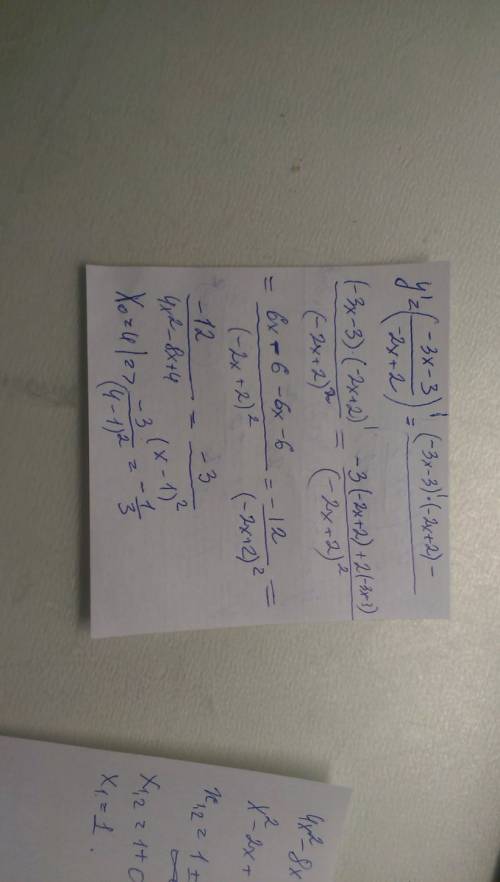 y' = (-3x-3 / -2x+2)' = (-3x-3)'·(-2x+2) -
(-3x-3)·(-2x+2)' / (-2x+2)² = -3(-2x+2)+2(-3x-3) / (-2x+2)²
= 6x-6-6x-6 / (-2x+2)² = -12 / (-2x+2)² =
-12 / 4x²-8x+4 = -3 / (x-1)²
x₀=4 | => -3 / (4-1)² = -1/3
4x²-8x
x²-2x+
x₁,₂ = 1±
x₁,₂ = 1+0
x₁ = 1.